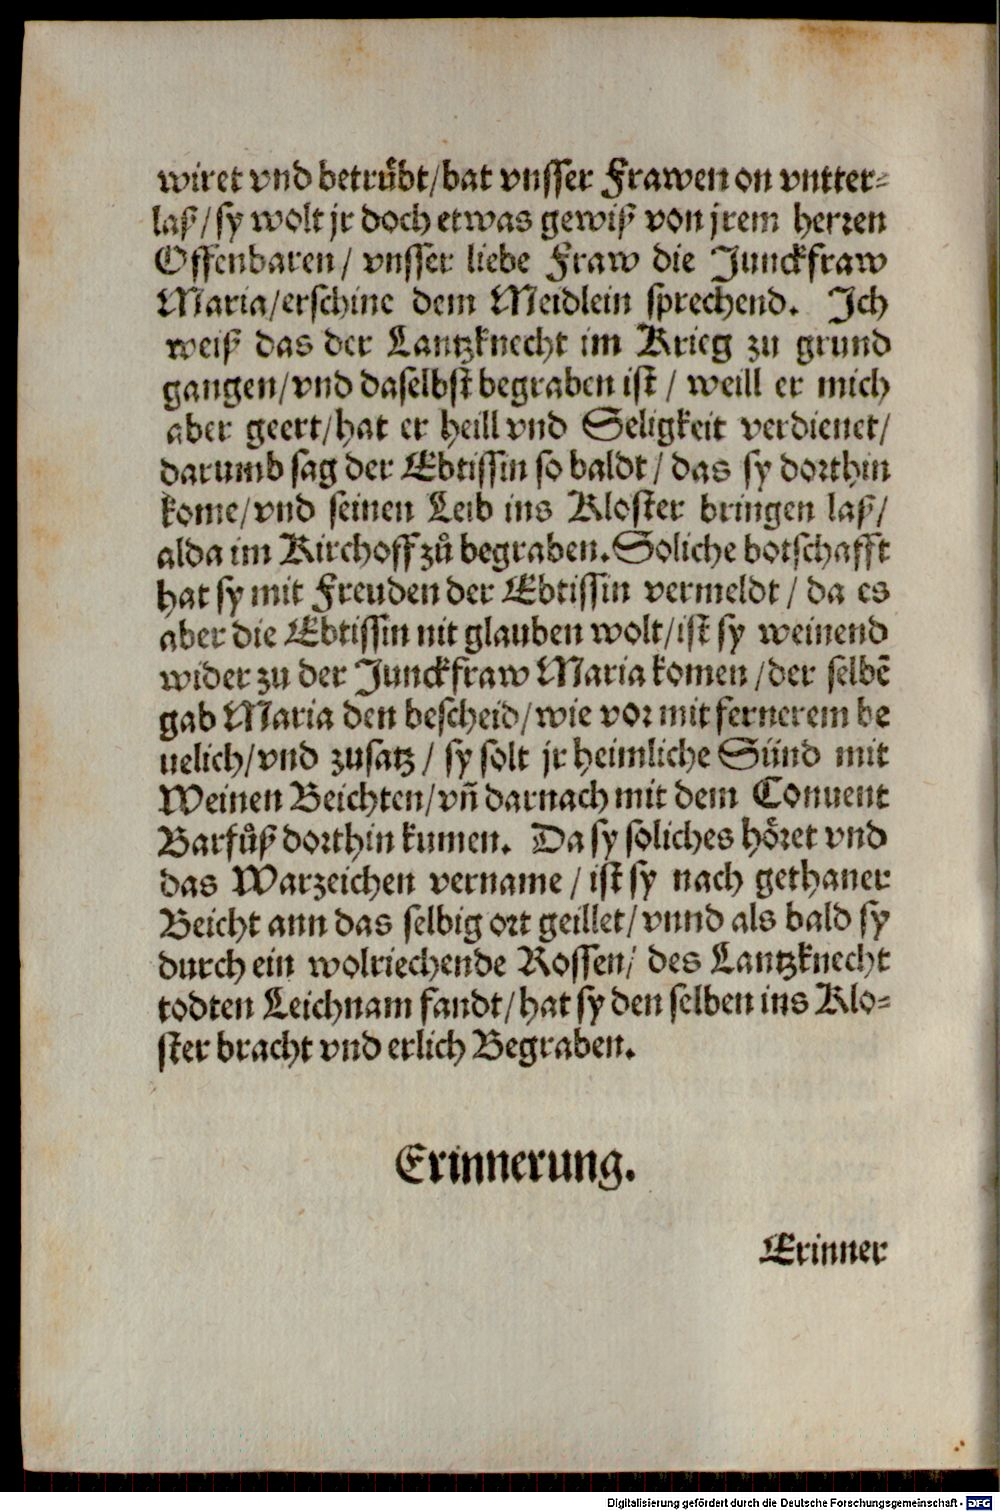 wiret vnd betruͤbt/bat vnsser Frawen on vntter-
laß/sy wolt jr doch etwas gewiß von jrem herren
Offenbaren/ vnsser liebe Fraw die Junckfraw
Maria/erschine dem Meidlein sprechend. Ich
weiß das der Lantzknecht im Krieg zu grund
gangen/vnd daselbst begraben ist / weill er mich
aber geert/hat er heill vnd Seligkeit verdienet/
darumb sag der Ebtissin so baldt / das sy dorthin
kome/vnd seinen Leib ins Kloster bringen laß/
alda im Kirchoff zů begraben. Soliche botschafft
hat sy mit Freuden der Ebtissin vermeldt / da es
aber die Ebtissin nit glauben wolt/ist sy weinend
wider zu der Junckfraw Maria komen /der selbē
gab Maria den bescheid/wie vor mit fernerem be
uelich/vnd zusatz / sy solt jr heimliche Sünd mit
Weinen Beichten/vñ darnach mit dem Conuent
Barfůß dorthin kumen. Da sy soliches hoͤret vnd
das Warzeichen vername / ist sy nach gethaner
Beicht ann das selbig ort geillet/ vnnd als bald sy
durch ein wolriechende Rossen/ des Lantzknecht
todten Leichnam fandt/hat sy den selben ins Klo-
ster bracht vnd erlich Begraben.
Erinnerung.
Erinner
Digitalisierung gefördert durch die Deutsche Forschungsgemeinschaft - DFG